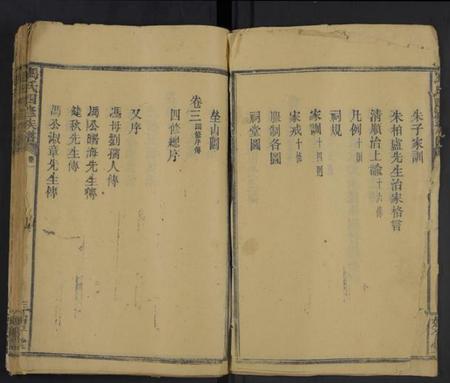 朱子家訓
朱柏盧先生治家格言
清順治上諭十六條
凡例十則
祠規
家訓十四則
家戒十條
服制各圖
祠堂圖
坐山圖
卷三 四修序傳
四修總序
又序
馮母劉孺人傳
馮公曉海先生傳
健秋先生傳
馮公淑章先生傳
馮氏四修族譜
卷